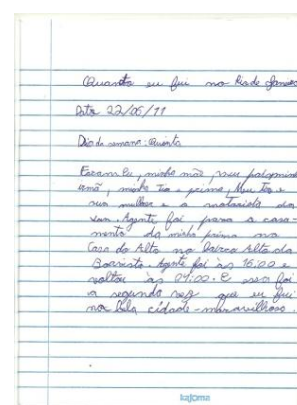 Quando eu fui no Rio de Janeiro
Data 22/06/11
Dia da semana: Quarta
Foram: Eu, minha mãe, meu
irmã, minha tia e primo, Meu tio e
sua mulher e a motorista da
van. Agente foi para o casa-
mento da minha prima na
Casa do Alto no Alto da
Boavista. Agente foi às 16:00 e
voltou às 04:00. E essa foi
a segunda vez que eu fui
na bela cidade maravilhosa.
kajoma